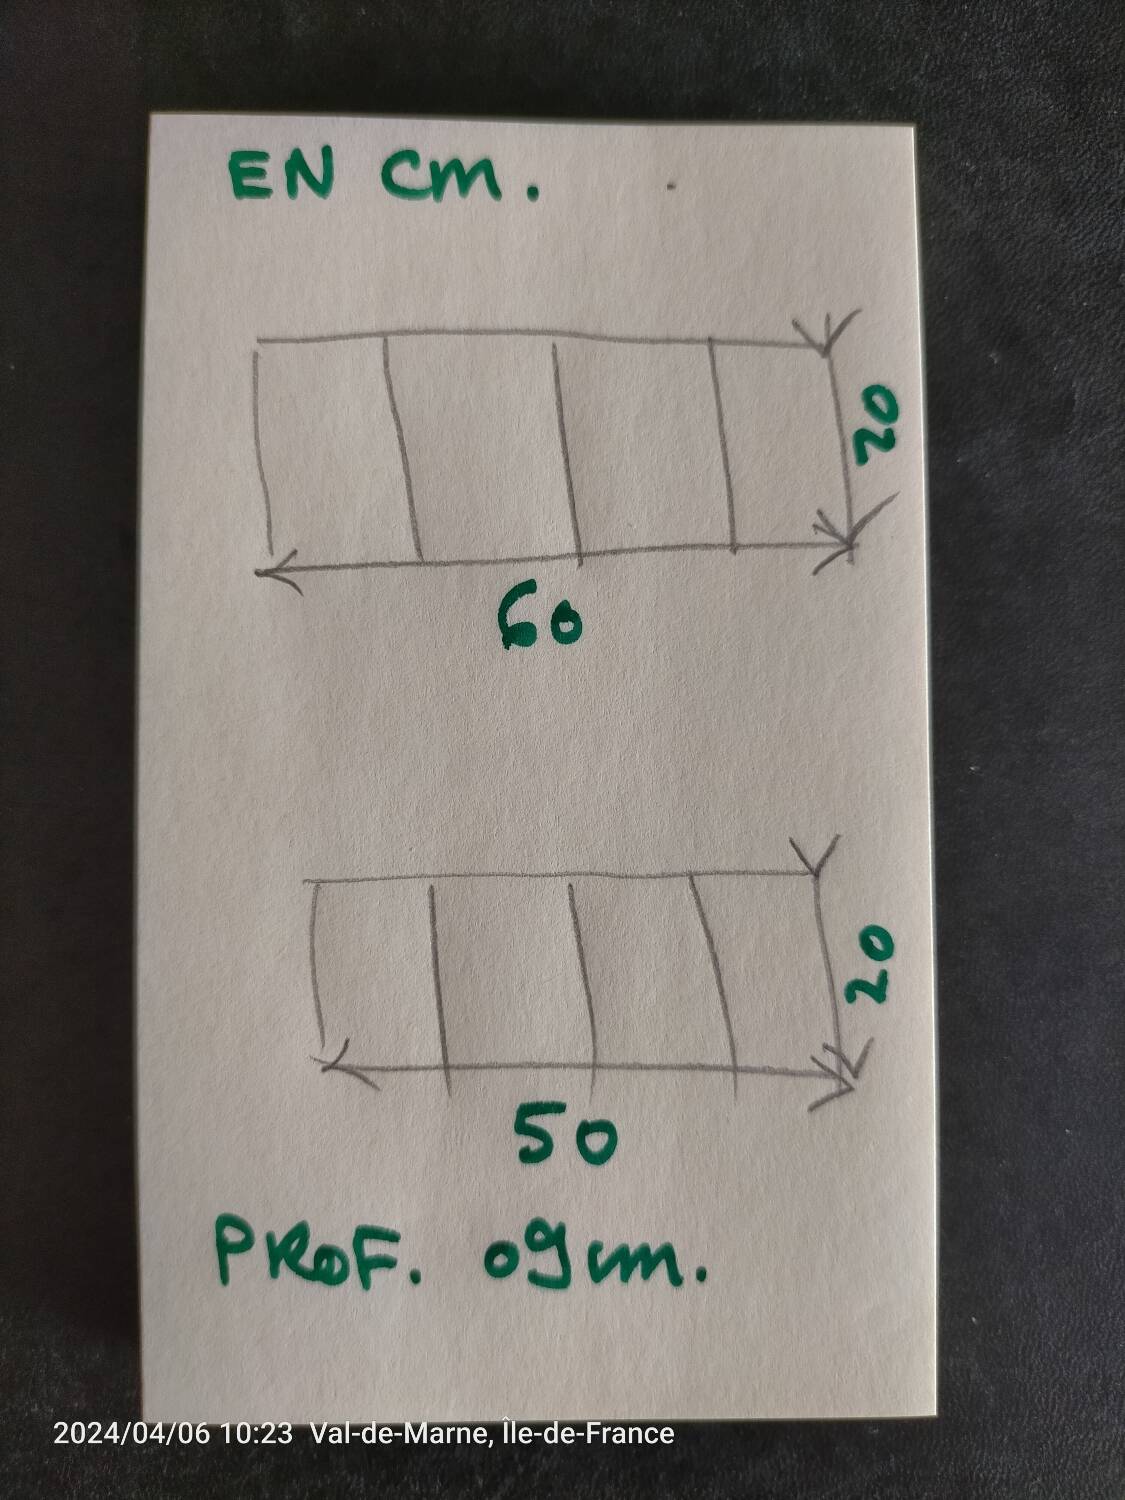 EN cm.
20
60
20
50
PROF. 09cm.
2024/04/06 10:23 Val-de-Marne, Île-de-France